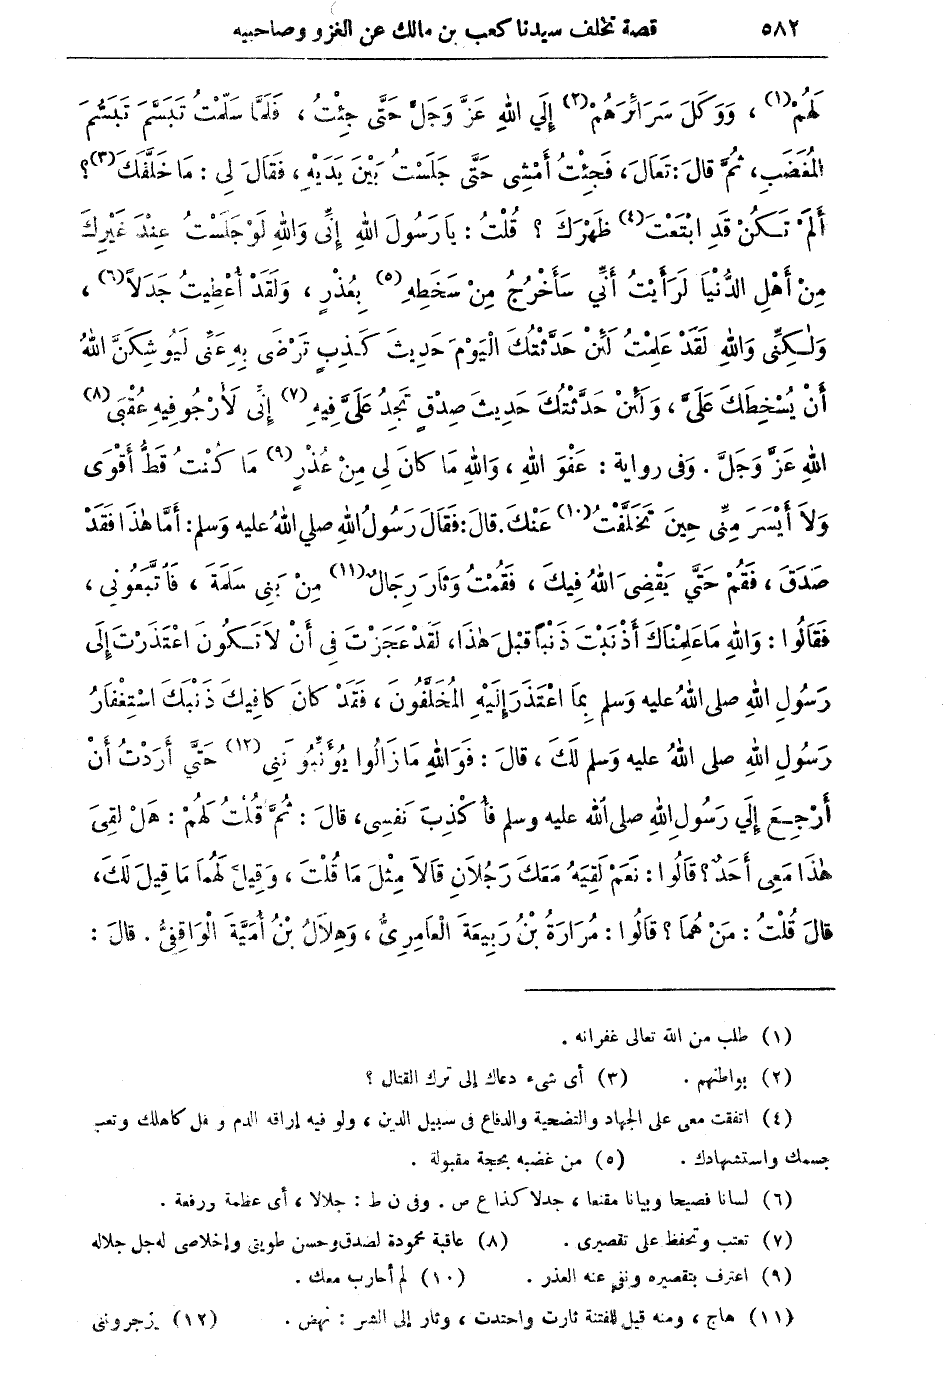 ٥٨٢ قصة تخلف سيدنا كعب بن مالك عن الغزو وصاحبيه
لَهُمْ(١) ، وَوَكَلَ سَرَائِرَهُمْ(٢) إِلَي اللهِ عَزَّ وَجَلَّ حَتَّى جِئْتُ ، فَلَمَّا سَلَّمْتُ تَبَسَّمَ تَبَسُّمَ
الْمُغْضَبِ، ثُمَّ قَالَ: تَعَالَ، فَجِئْتُ أَمْشِى حَتَّى جَلَسْتُ بَيْنَ يَدَيْهِ، فَقَالَ لِى : مَا خَلَّفَكَ(٣)؟
أَلَمْ تَكُنْ قَدِ ابْتَعْتَ(٤) ظَهْرَكَ ؟ قُلْتُ : يَارَسُولَ اللهِ إِنِّى وَاللهِ لَوْ جَلَسْتُ عِنْدَ غَيْرِكَ
مِنْ أَهْلِ الدُّنْيَا لَرَأَيْتُ أَنِّي سَأَخْرُجُ مِنْ سَخَطِهِ(٥) بِعُذْرٍ ، وَلَقَدْ أُعْطِيتُ جَدَلاً(٦) ،
وَلٰكِنِّى وَاللهِ لَقَدْ عَلِمْتُ لَئِنْ حَدَّثْتُكَ الْيَوْمَ حَدِيثَ كَذِبٍ تَرْضَى بِهِ عَنِّى لَيُوشِكَنَّ اللهُ
أَنْ يُسْخِطَكَ عَلَىَّ ، وَلَئِنْ حَدَّثْتُكَ حَدِيثَ صِدْقٍ تَجِدُ عَلَىَّ فِيهِ(٧) إِنِّى لَأَرْجُو فِيهِ عُقْبَى(٨)
اللهِ عَزَّ وَجَلَّ . وَفى رواية : عَفْوَ اللهِ ، وَاللهِ مَا كَانَ لِى مِنْ عُذْرٍ(٩) مَا كُنْتُ قَطُّ أَقْوَى
وَلاَ أَيْسَرَ مِنِّى حِينَ تَخَلَّفْتُ(١٠) عَنْكَ. قَالَ: فَقَالَ رَسُولُ اللهِ صلي اللهُ عليه وسلم: أَمَّا هٰذَا فَقَدْ
صَدَقَ ، فَقُمْ حَتَّي يَقْضِىَ اللهُ فِيكَ ، فَقُمْتُ وَثَارَ رِجَالٌ(١١) مِنْ بَنِى سَلَمَةَ ، فَاتَّبَعُونِى ،
فَقَالُوا : وَاللهِ مَاعَلِمْنَاكَ أَذْنَبْتَ ذَنْباً قَبْلَ هٰذَا، لَقَدْ عَجَزْتَ فِى أَنْ لاَتَكُونَ اعْتَذَرْتَ إِلَى
رَسُولِ اللهِ صلى اللهُ عليه وَسلم بِمَا اعْتَذَرَ إِلَيْهِ الْمُخَلَّفُونَ ، فَقَدْ كَانَ كَافِيكَ ذَنْبَكَ اسْتِغْفَارُ
رَسُولِ اللهِ صلى اللهُ عليه وَسلم لَكَ ، قَالَ : فَوَاللهِ مَازَالُوا يُؤَنِّبُونَنِى(١٢) حَتَّي أَرَدْتُ أَنْ
أَرْجِعَ إِلَي رَسُولِ اللهِ صلى الله عليه وسلم فَأُكَذِّبَ نَفْسِى، قَالَ : ثُمَّ قُلْتُ لَهُمْ : هَلْ لَقِىَ
هٰذَا مَعِى أَحَدٌ؟ قَالُوا : نَعَمْ لَقِيَهُ مَعَكَ رَجُلاَنِ قَالاَ مِثْلَ مَا قُلْتَ ، وَقِيلَ لَهُمَا مَا قِيلَ لَكَ،
قَالَ قُلْتُ : مَنْ هُمَا ؟ قَالُوا : مُرَارَةُ بْنُ رَبِيعَةَ الْعَامِرِىُّ ، وَهِلاَلُ بْنُ أُمَيَّةَ الْوَاقِفِىُّ . قَالَ :
(١) طلب من الله تعالى غفرانه .
(٢) بواطنهم . (٣) أى شىء دعاك إلى ترك القتال ؟
(٤) اتفقت معى على الجهاد والتضحية والدفاع فى سبيل الدين ، ولو فيه إراقه الدم و فل كاهلك وتعب
جسمك واستشهادك . (٥) من غضبه بحجة مقبولة .
(٦) لسانا فصيحا وبيانا مقنعا ، جدلا كذا ع ص . وفى ن ط : جلالا ، أى عظمة ورفعة .
(٧) تعتب وتحفظ على تقصيرى . (٨) عاقبة محمودة لصدق وحسن طويتى وإخلاصى له جل جلاله
(٩) اعترف بتقصيره ونفى عنه العذر . (١٠) لم أحارب معك .
(١١) هاج ، ومنه قيل للفتنة ثارت واحتدت ، وثار إلى الشر : نهض . (١٢) يزجروننى